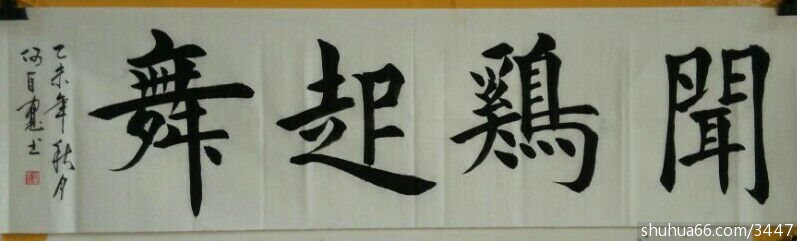 聞鷄起舞
乙未年秋月
何自寛书
shuhua66.com/3447